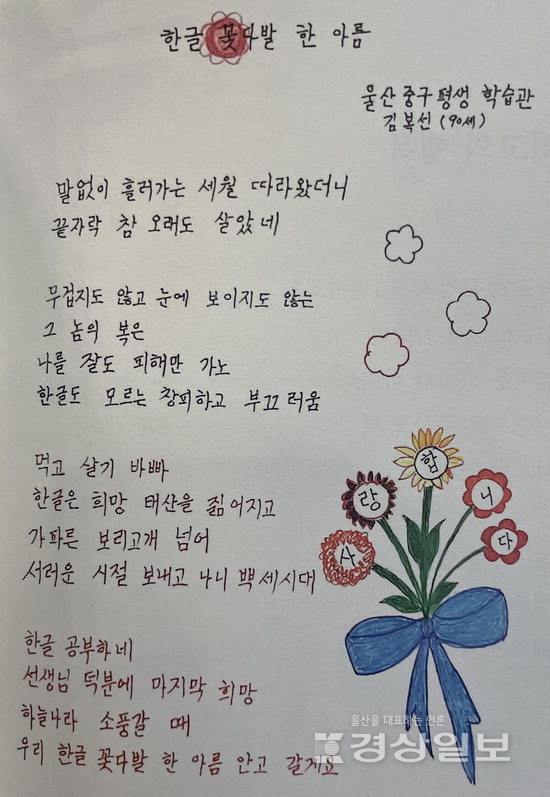 한글 꽃다발 한 아름
울산 중구 평생 학습관
김복선 (90세)
말없이 흘러가는 세월 따라왔더니
끝자락 참 오래도 살았네
무겁지도 않고 눈에 보이지도 않는
그 놈의 복은
나를 잘도 피해만 가노
한글도 모르는 창피하고 부끄러움
먹고 살기 바빠
한글은 희망 태산을 짊어지고
가파른 보리고개 넘어
서러운 시절 보내고 나니 뿍세시대
한글 공부하네
선생님 덕분에 마지막 희망
하늘나라 소풍갈 때
우리 한글 꽃다발 한 아름 안고 갈게요
사랑합니다
울산을 대표하는 언론
경상일보